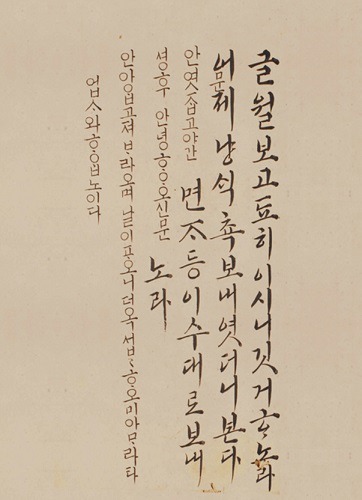 글월 보고 됴히 이시니 깃거ᄒᆞ노라
어제 냥ᄉᆡᆨ 쵹 보내엿더니 본다
면ᄌᆞ등 이 수대로 보내
노라
문
안 엿ᄌᆞᆸ고 야간
셩후 안녕ᄒᆞᄋᆞ오신 문
안 아ᄋᆞᆸ고져 ᄇᆞ라오며 날이 포 오니 더옥 섭섭ᄒᆞᄋᆞ오미 아ᄆᆞ라타
업ᄉᆞ와 ᄒᆞᄋᆞᆸ노이다